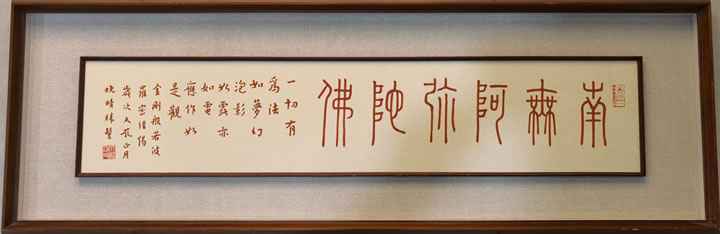 南無阿弥陀佛
一切有
為法
如夢幻
泡影
如露亦
如電
應作如
是觀
金剛般若波
羅蜜經偈
歲次正月
晚晴